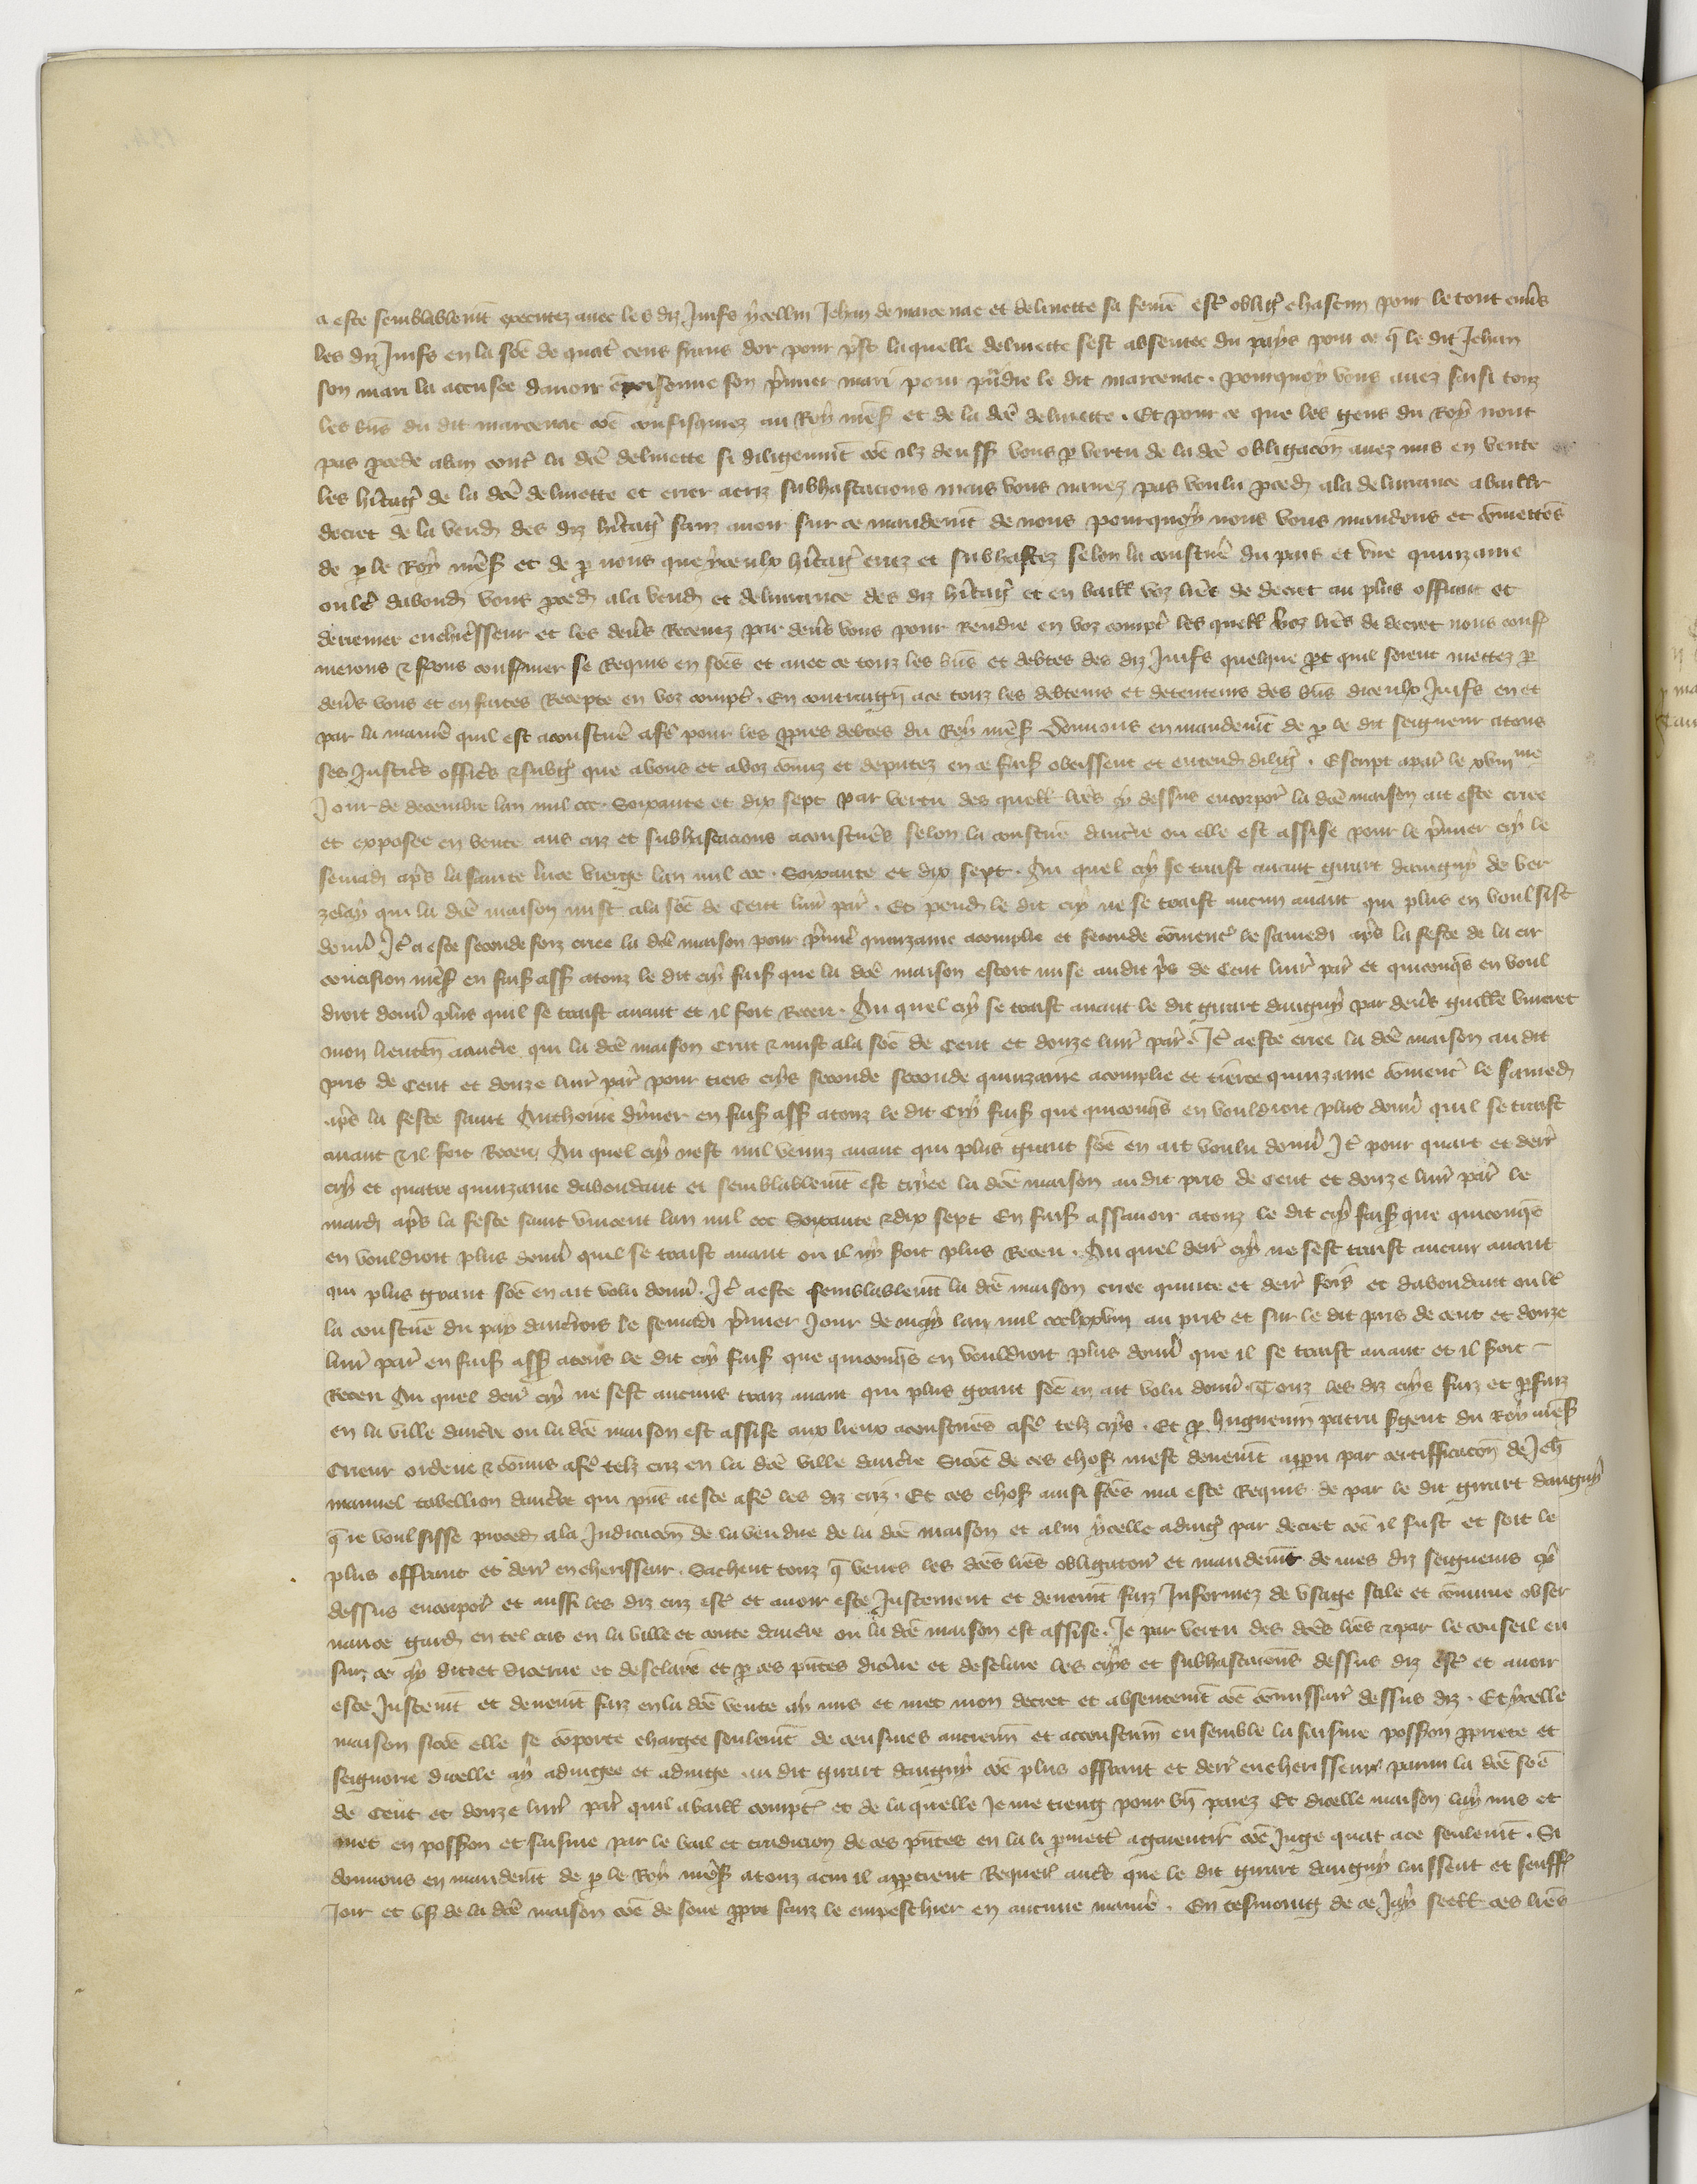 a este semblablemt executez avec les diz Juifs ycellui Jehan de marcenac et delinette sa feme estre obligẽ chascun pour le tout envs
les diz Juifs en la soẽ de quatẽ cens frans dor pour pst laquelle delinette sest absentee du pays pour ce q̃ le dit Jehan
son mari la accusee davoir empoisonne son pmier mari pour pndre le dit marcenac . pourquoy vous avez saisi touz
les bñs du dit marcenac coẽ confisquez au Roy mẽs et de la dcẽ delinette . Et pour ce que les gens du Roy nont
pas pcede avan contẽ la dcẽ delinette si diligenmt coẽ ilz deussẽt vous p vertu de la dcẽ obligacoñ avez mis en vente
les hitagẽ de la dcẽ delinette et crier a criz subhastacions mais vous navez pas voulu pceder a la delivrance a baillr
decret de la vendẽ des diz hitagẽ sanz avoir sur ce mandemt de nous pourquoy nous vous mandons et cõmettõs
de p le Roy mẽs et de p nous que yceulx hitagẽ criez et subhastez selon la coustumẽ du pais et une quinzaine
oultẽ dabondẽ vous pcedẽ a la vendẽ et delivrance des diz hitagẽ et en baillẽ voz lres de decret au plus offrant et
derrenier encherisseur et les deñs Recevez par devs vous pour Rendre en voz comptẽ les quellẽ voz lres de decret nous conf
merons & ferons confirmer se Requis en soẽs et avec ce touz les bñs et debtes des diz Juifs quelque pt quil soient mettez p
devs vous et en faites Recepte en voz comptẽ . En contraign̄ a ce touz les debteurs et detenteurs des bñs diceulx Juifs en et
par la maniẽ quil est acoustumẽ a fẽ pour les ppres debtes du Roy mẽs Donnons en mandemt de p le dit seigneur a tous
ses Justicẽs officẽs & subgẽ que a vous et a voz cõmiz et deputez en ce faisẽ obeissent et entendẽ diligẽ . Escript a parẽ le xviii me
Jour de decembre lan mil ccc . Soixante et dix sept par vertu des quellẽ lres cy dessus encorporẽ la dcẽ maison ait este criee
et exposee en vente aus criz et subhastacions acoustumẽs selon la coustumẽ daucẽrre ou elle est assise pour le pmier cry le
semadẽ aps la sainte luce vierge lan mil ccc . Soixante et dix sept . Au quel cry se traist avant girart dauguy de Ver
zelay qui la dcẽ maison mist a la soẽ de Cent livrẽ parẽ . Et pendẽ le dit cry ne se traist aucun avant qui plus en voulsist
donñ Itẽ a este seconde foiz criee la dcẽ maison pour pmierẽ quinzaine acomplie et seconde cõmencẽ le samedi aps la feste de la cir
concision mẽs en faisẽ assẽ a touz le dit cry faisẽ que la dcẽ maison estoit mise audit ps de Cent livrẽ parẽ et quiconqs en voul
droit donñ plus quil se traist avant et il soit Receu . Au quel cry se traist avant le dit girart dauguy par devs guillẽ vincent
mon lieuteñ a aucẽrre qui la dcẽ maison Crut & mist a la soẽ de Cent et douze livrẽ parẽ . Itẽ a este criee la dcẽ maison au dit
pris de Cent et douze livrẽ parẽ pour tiers crys seconde seconde quinzaine acomplie et tierce quinzaine cõmencẽ le samedẽ
aps la feste saint Anthoine dyver en faisẽ assẽ a touz le dit Cry faisẽ que quiconqs en vouldroit plus donñ quil se traist
avant & il soit Receu Au quel cry nest nul venuz avant qui plus grant soẽ en ait voulu donñ Itẽ pour quart et derrẽ
cry et quatre quinzaine dabondant et semblablemt est cryee la dcẽ maison au dit pris de Cent et douze livrẽ parẽ le
mardẽ aps la feste saint vincent lan mil ccc Soixante & dix sept En faisẽ assavoir a touz le dit cry faisẽ que quiconqs
en vouldroit plus donñ quil se traist avant ou il ny soit plus Receu . Au quel derrẽ cry ne sest traist aucun avant
qui plus grant soẽ en ait volu donñ . Itẽ a este semblablemt la dcẽ maison criee quinte et derrẽ fois et dabondant oultẽ
la coustumẽ du pay daucẽrrois le semadi pmier Jour de may lan mil ccclxxviii au pris et sur le dit pris de cent et douze
livrẽ parẽ en faisẽ assẽ a tous le dit cry faisẽ que quiconqs en vouldroit plus donñ que il se traist avant et il soit -
Receu Au quel derrẽ cry ne sest aucuns traiz avant qui plus grant soẽ en ait volu donñ Touz les diz crys faiz et pfaiz
en la ville daucẽrre ou la dcẽ maison est assise aux lieux acoustumẽs a fẽ telz crys . Et p huguenin patru sgent du Roy mẽs
Crieur ordene & cõmis a fẽ telz criz en la dcẽ ville daucẽrre Sicoẽ de ces chosẽ mest devemt apparu par certifficacoñ de Jeh
manuel tabellion daucẽrre qui pñt a este a fẽ les diz criz . Et ces chosẽ ainsi fcẽs ma este Requis de par le dit girart dauguy
q̃ ie voulsisse procedẽ a la Judicacoñ de la vendue de la dcẽ maison et a lui ycelle adiugẽ par decret coẽ il fust et soit le
plus offrant et derrẽ encherisseur . Sachent touz q̃ veues les dcẽs lres obligatoirẽ et mandemt de mes diz seigneurs cy
dessus encorporẽ et aussi les diz criz estẽ et avoir este Justement et devemt faiz Informez de usage stile et cõmune obser
vance gardẽ en tel cas en la ville et conte daucẽrre ou la dcẽ maison est assise . Je par vertu des dcẽs lres & par le conseil eu
sur ce ay dit et dicerne et desclaire et p ces pñtes dicerne et desclaire les crys et subhastacions dessus diz estẽ et avoir
este Justemt et devemt faiz en la dcẽ vente ay mis et met mon decret et absentemt coẽ cõmissairẽ dessus diz . Et ycelle
maison sicoẽ elle se cõporte chargee seulemt de censives ancienñ et accoustum̄ ensemble la saisine possion ppriete et
seignorie dicelle ay adiugee et adiuge au dit girart dauguy coẽ plus offrant et derrẽ encherisseur parmi la dcẽ soẽ
de Cent et douze livrẽ parẽ quil a baillẽ comptẽ et de la quelle Je me tieng pour bñ paiez Et dicelle maison lay mis et
met en possion et saisine par le bail et tradicion de ces pñtes en la li pmettẽ a garentir coẽ Juge quat a ce seulemt . Si
donnons en mandemt de p le Roy mẽs a touz a cui il appartient Requerẽ autẽs que le dit girart dauguy laissent et seuffrẽ
Joir et usẽ de la dcẽ maison coẽ de soue ppre sanz le empeschier en aucune maniẽ . En tesmoing de ce Jay seellẽ ces lres